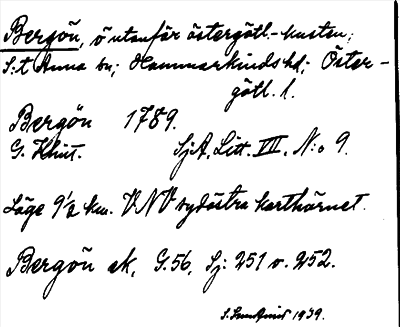 Bergön, ö utanför östergötl.-kusten;
S:t Anna sn; Hammarkinds hd; Öster-
götl. l.
Bergön 1789.
G. Klint. SjA. Litt. VII. N:o 9.
Läge 9½ km. VNV sydöstra karthörnet.
Bergön ek, G.56, Sj: 251 v. 252.
1939.